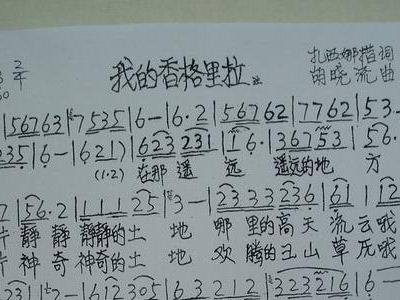 我的香格里拉
扎西娜措词
苗晓流曲
2
|56763|7535|6-|6.2|56762|7762|53.
235|6-|621)|623231|16.|36753|56.
(1.2)在那遥 远 遥远的地 方
7|56.2|11125|3-|2333236|61|12
静静静静的土 地 哪里的高天流云哦
片神奇神奇的土 地 欢腾的 山草
231|2-|612305|63212|323216|6-